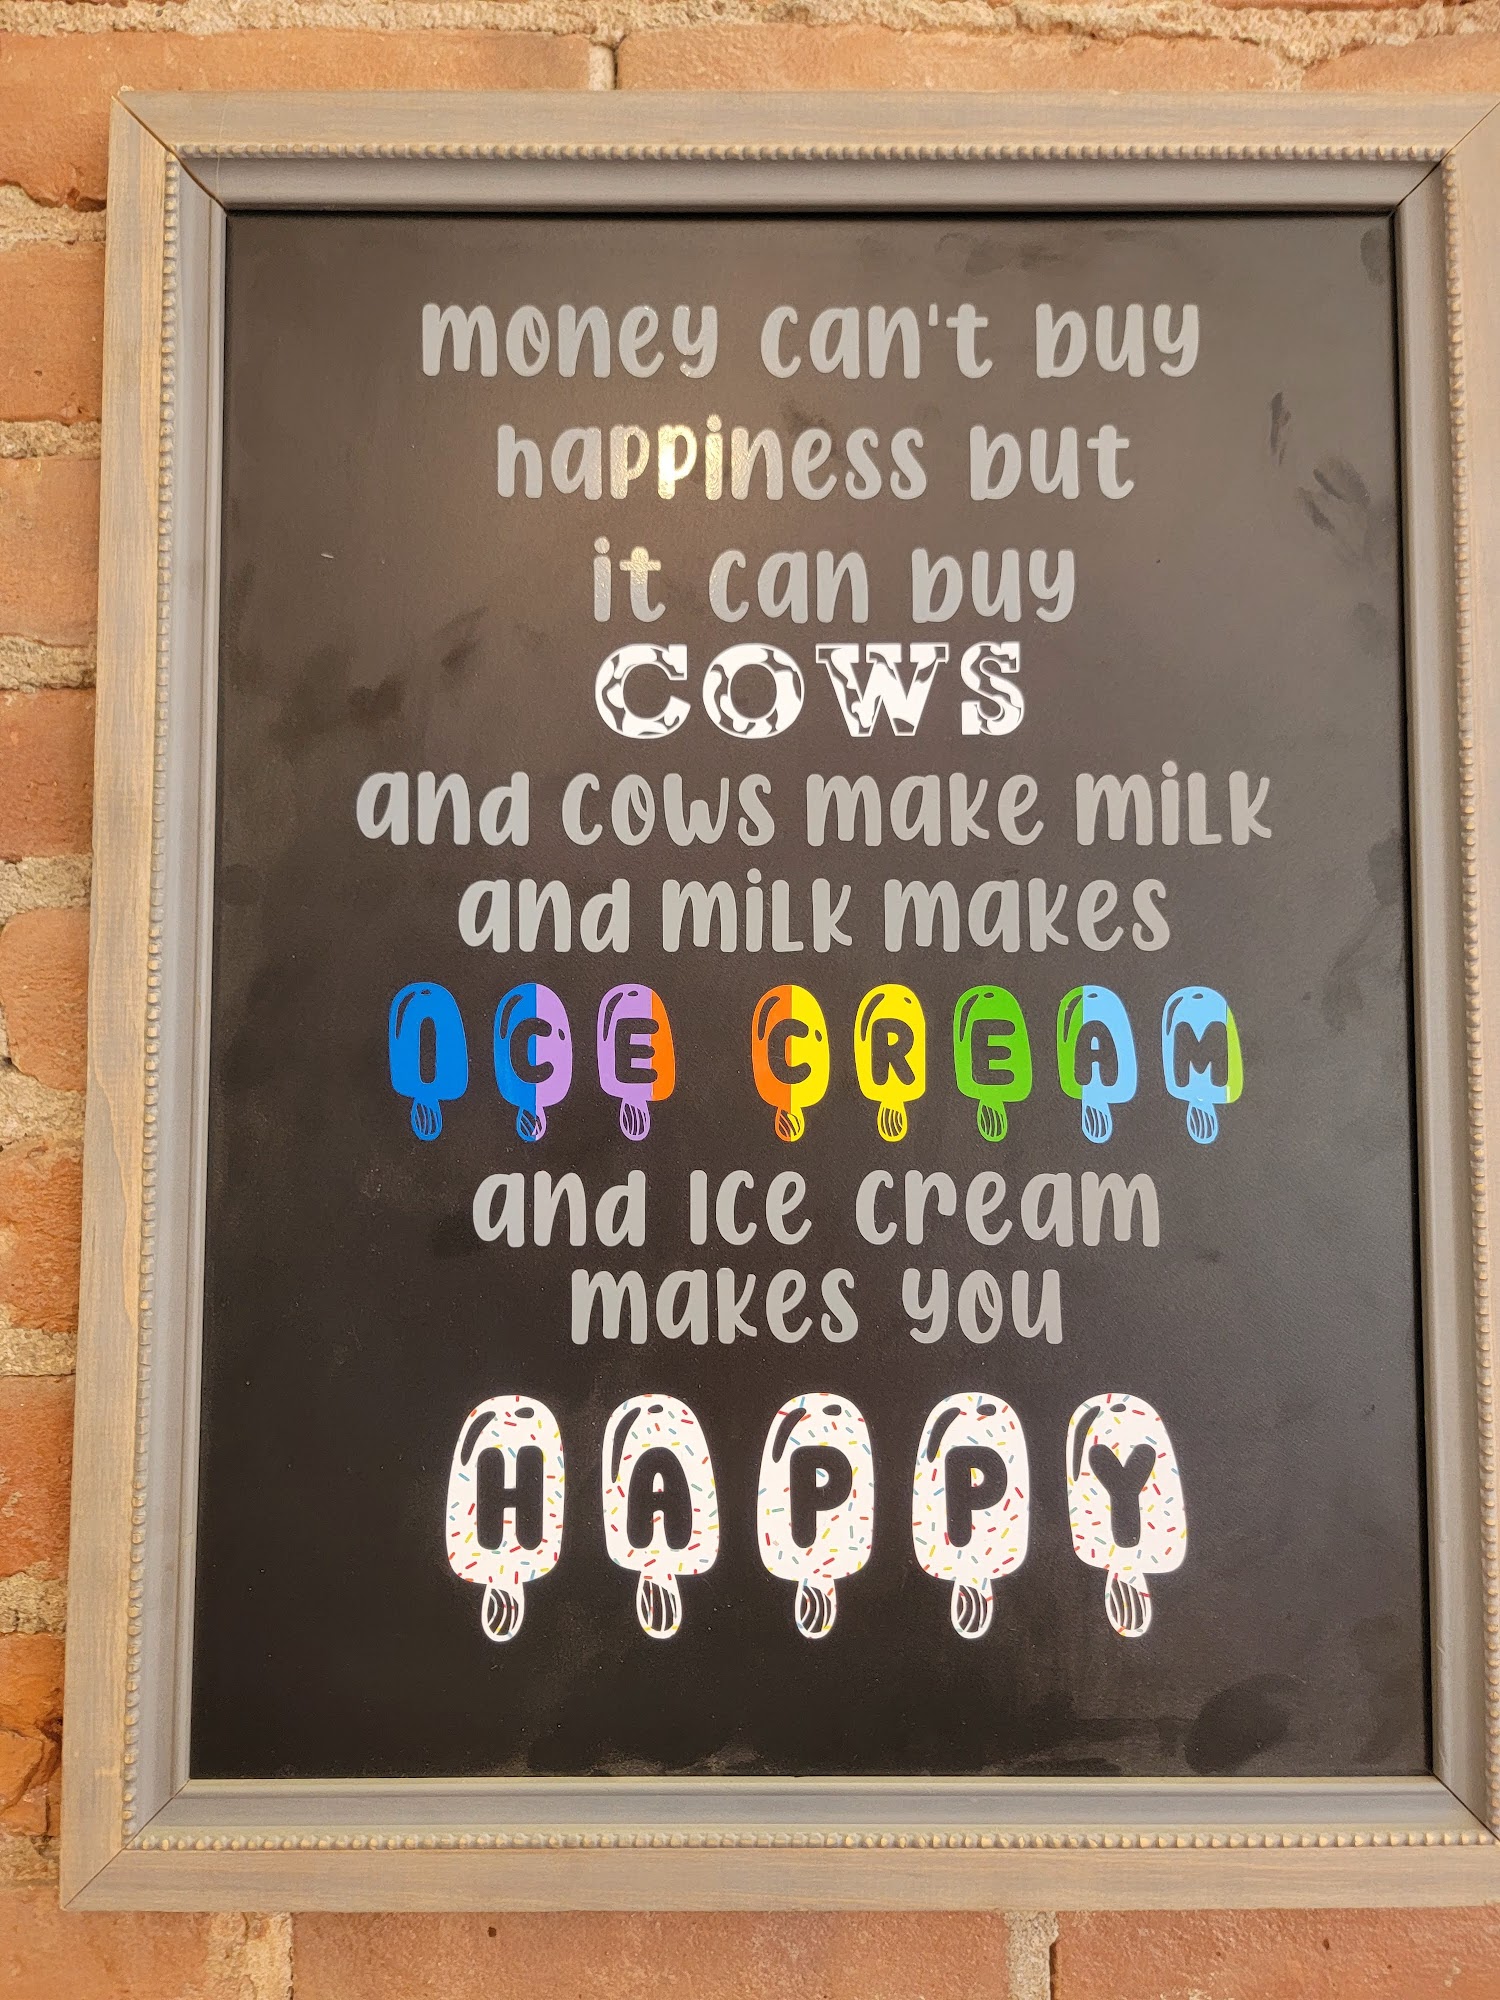 money can't buy
happiness but
it can buy
COWS
and cows make milk
and milk makes
ICE CREAM
and ice cream
makes you
HAPPY